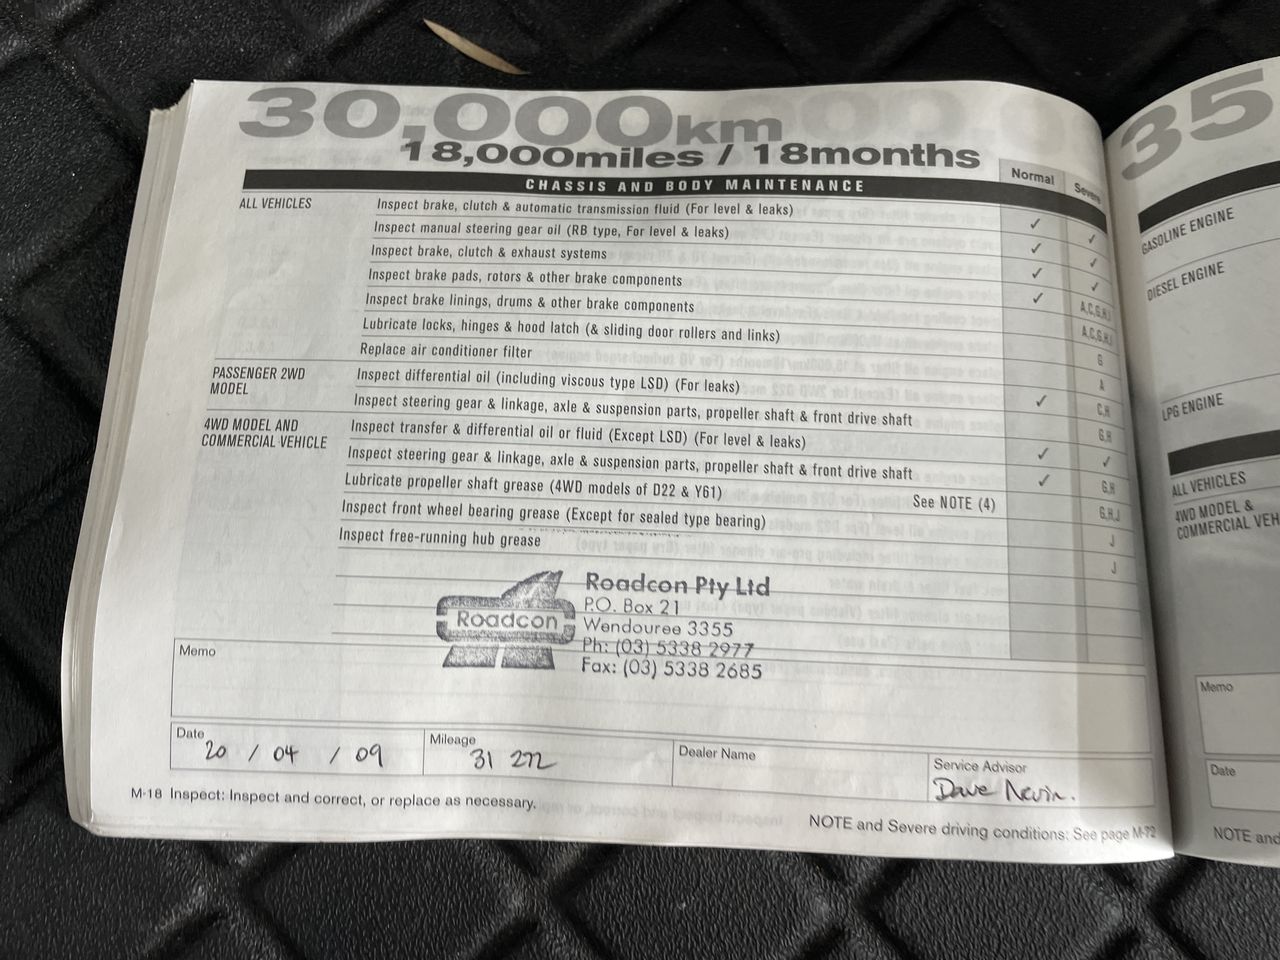 30,000km
18,000miles / 18months
Normal
Severe
CHASSIS AND BODY MAINTENANCE
ALL VEHICLES
Inspect brake, clutch & automatic transmission fluid (For level & leaks) ✓ ✓
Inspect manual steering gear oil (RB type, For level & leaks) ✓ ✓
Inspect brake, clutch & exhaust systems ✓ ✓
Inspect brake pads, rotors & other brake components ✓ A,C,G,H,J
Inspect brake linings, drums & other brake components A,C,G,H,J
Lubricate locks, hinges & hood latch (& sliding door rollers and links) G
Replace air conditioner filter A
PASSENGER 2WD
MODEL
Inspect differential oil (including viscous type LSD) (For leaks) ✓ C,H
Inspect steering gear & linkage, axle & suspension parts, propeller shaft & front drive shaft G,H
4WD MODEL AND
COMMERCIAL VEHICLE
Inspect transfer & differential oil or fluid (Except LSD) (For level & leaks) ✓ ✓
Inspect steering gear & linkage, axle & suspension parts, propeller shaft & front drive shaft ✓ G,H
Lubricate propeller shaft grease (4WD models of D22 & Y61) See NOTE (4) G,H,J
Inspect front wheel bearing grease (Except for sealed type bearing) J
Inspect free-running hub grease J
Roadcon
Roadcon Pty Ltd
P.O. Box 21
Wendouree 3355
Ph: (03) 5338 2977
Fax: (03) 5338 2685
Memo
Date
20 / 04 / 09
Mileage
31 272
Dealer Name
Service Advisor
Dave Nevin.
M-18 Inspect: Inspect and correct, or replace as necessary.
NOTE and Severe driving conditions: See page M-72
35
GASOLINE ENGINE
DIESEL ENGINE
LPG ENGINE
ALL VEHICLES
4WD MODEL &
COMMERCIAL VEH
Memo
Date
NOTE and